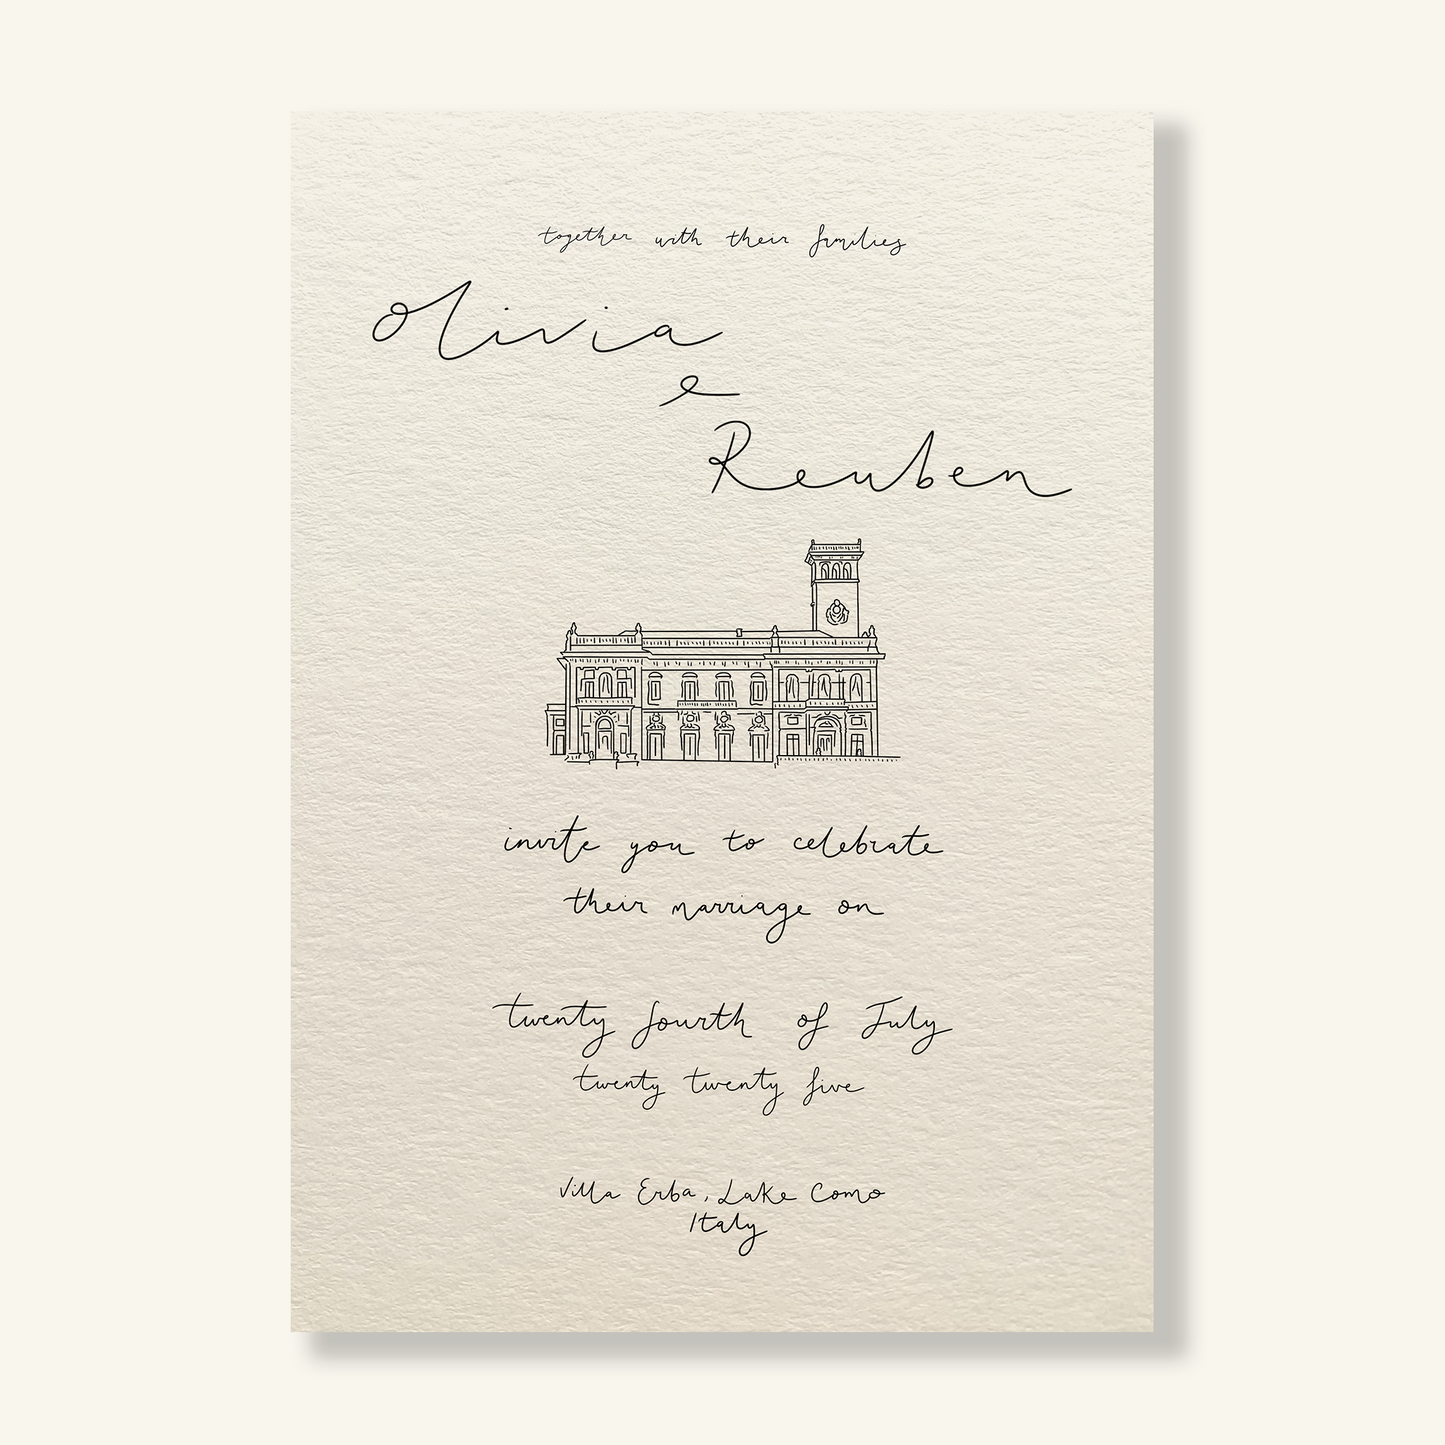 together with their families
Olivia
e
Reuben
invite you to celebrate
their marriage on
twenty fourth of July
twenty twenty five
Villa Erba, Lake Como
Italy